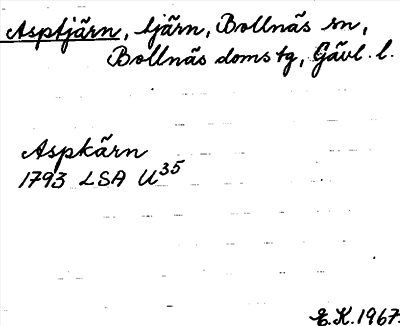 Asptjärn, tjärn, Bollnäs sn,
Bollnäs doms tg, Gävl. l.
Aspkärn
1793 LSA U35
E.K. 1967.